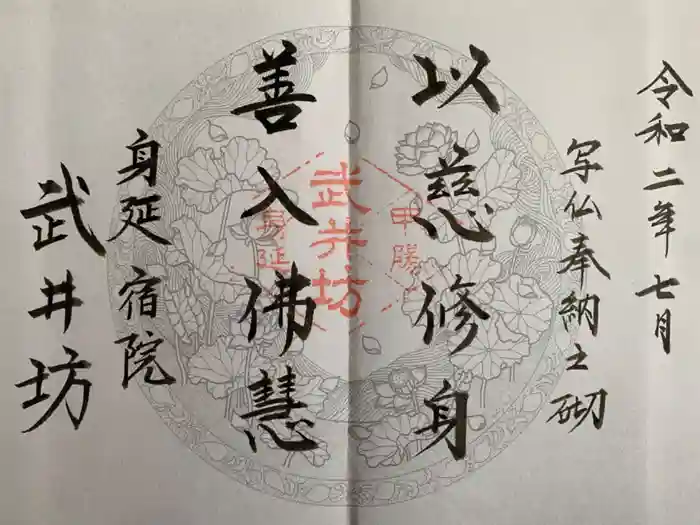 令和二年七月
写仏奉納之砌
以慈修身
善入佛慧
身延 宿院
武井坊
甲陽
武井坊
身延